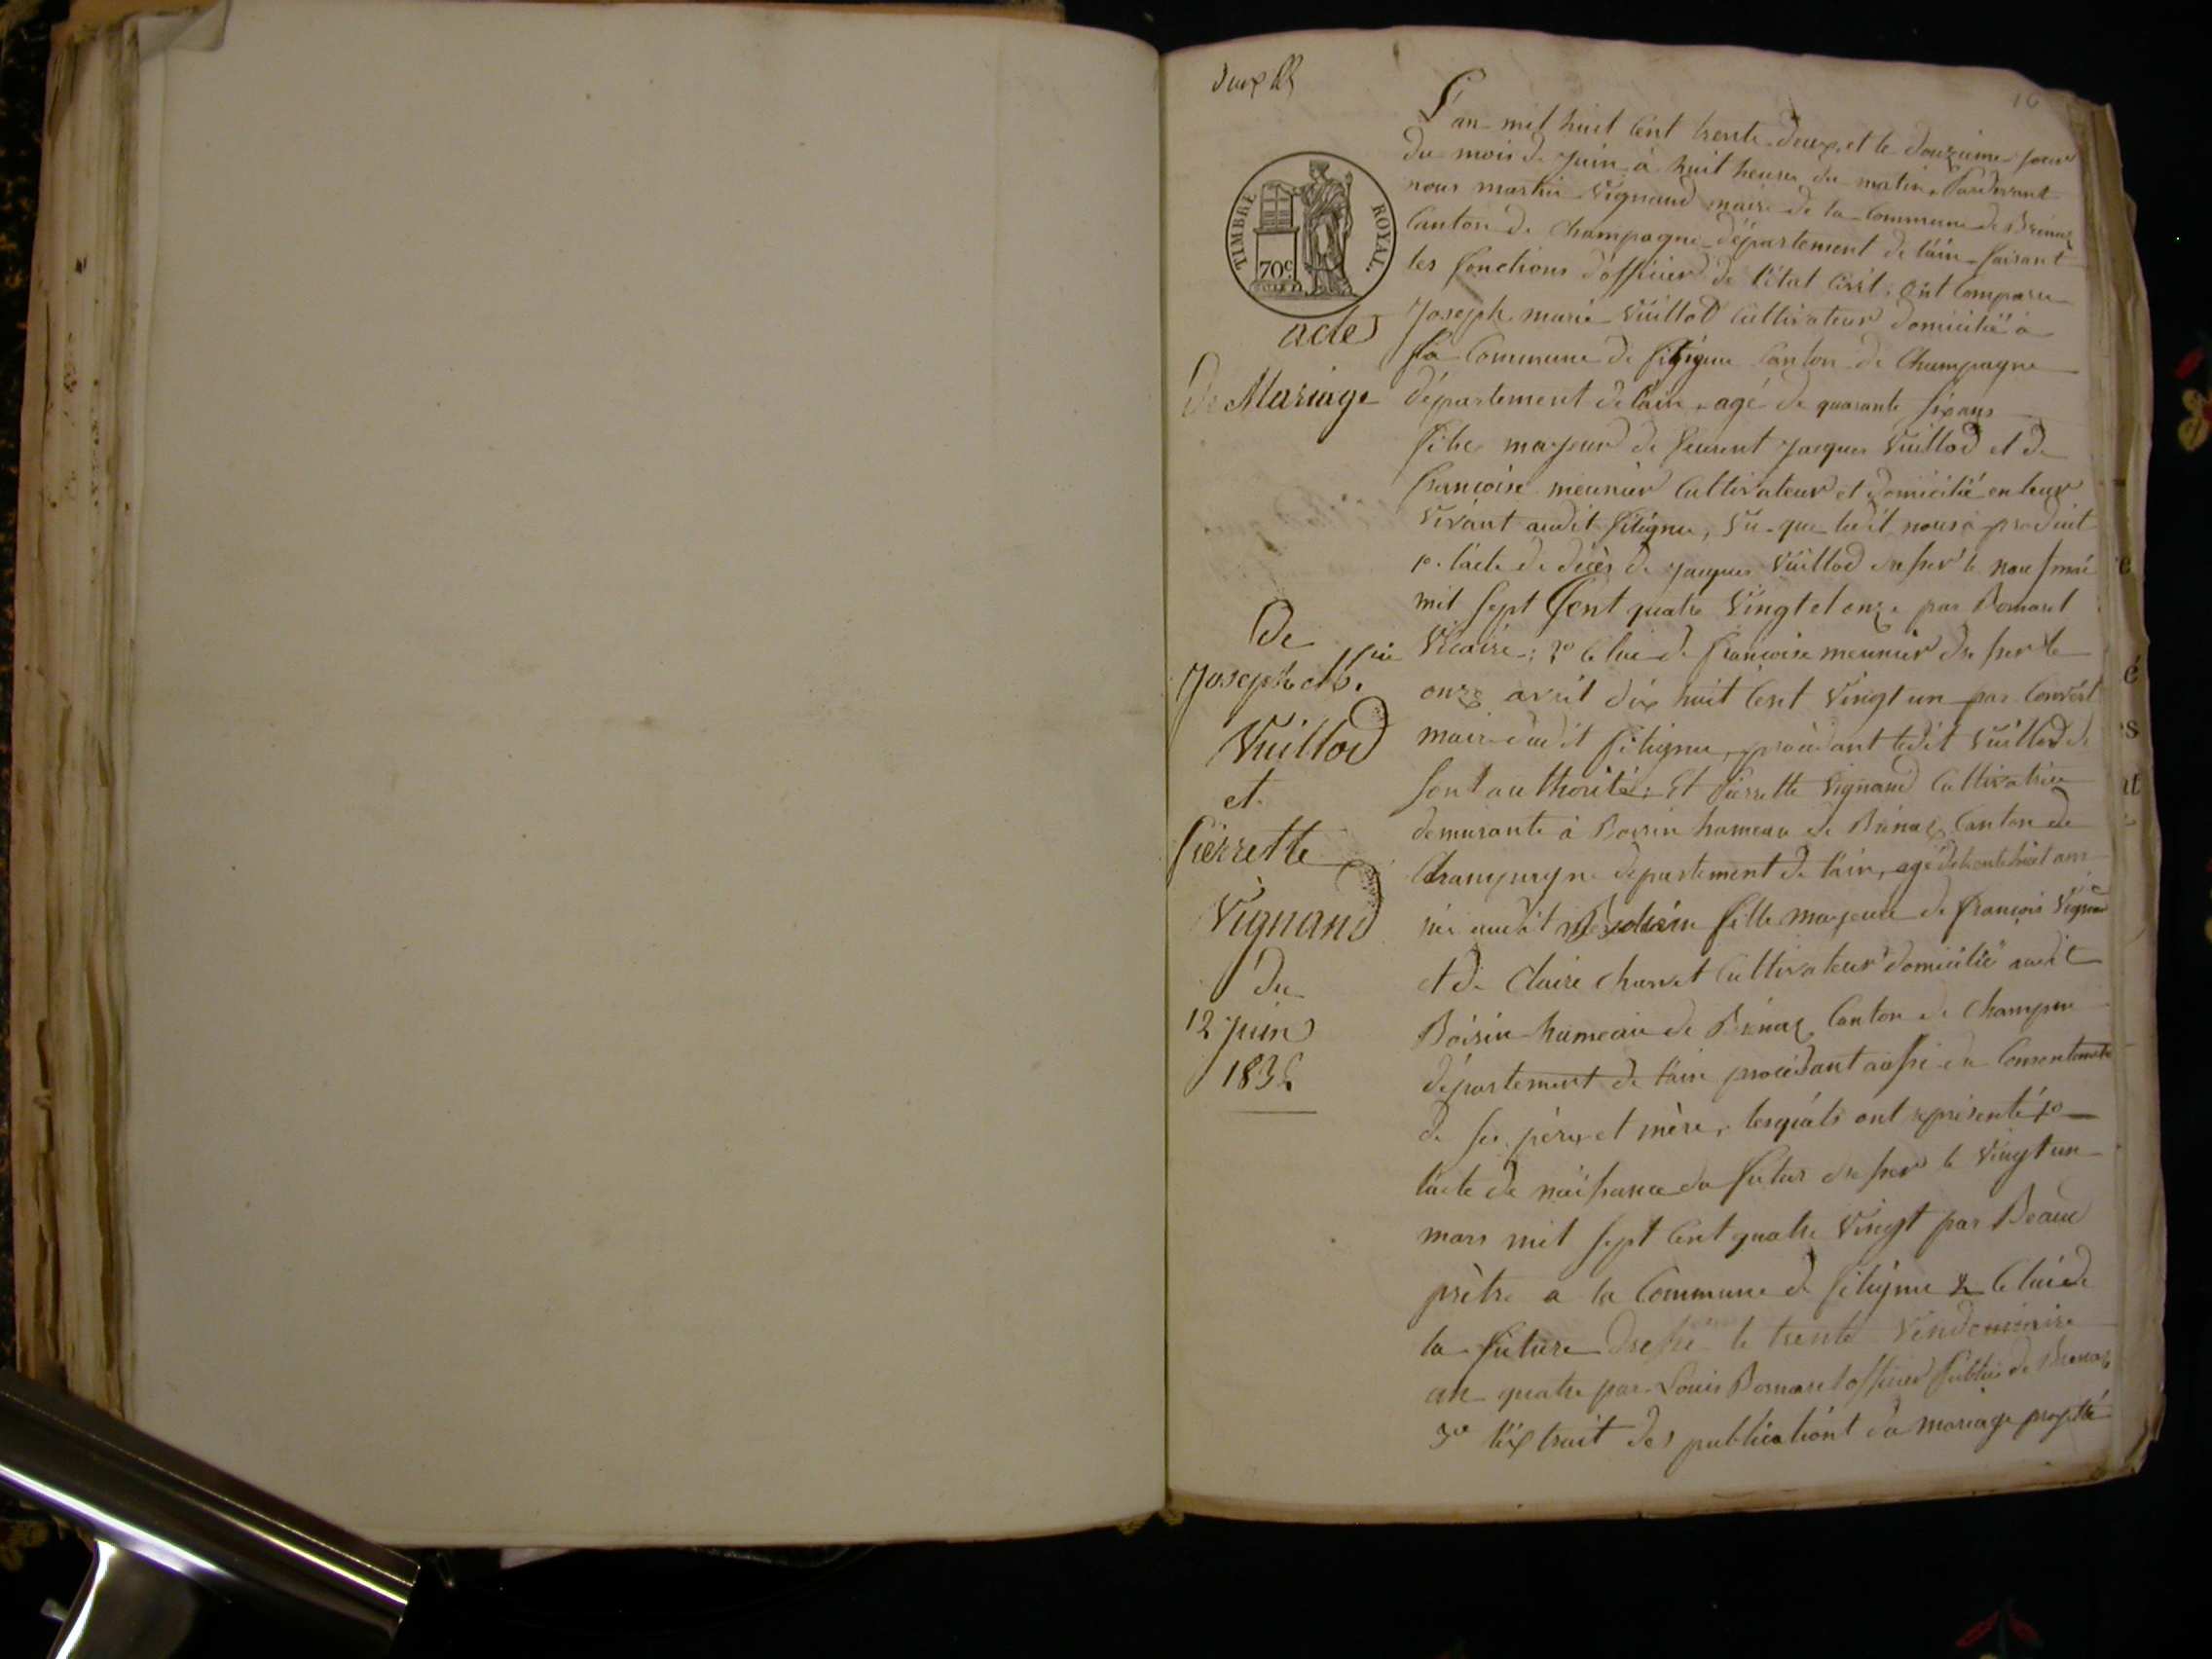 10
TIMBRE ROYAL.
70c
acte
De Mariage
De
Joseph
Vuillod
et
Pierrette
Vignand
Du
12 Juin
1832
L'an mil huit cent trente deux, et le douzieme jour
du mois de Juin à huit heures du matin. Pardevant
nous martin Vignand maire de la commune de Brenaz
Canton de Champagne département de l'ain faisant
les fonctions d'officier de l'état civil, ont comparu
Joseph marie Vuillod Cultivateur domicilié à
la Commune de Commune Canton de Champagne
département de l'ain, agé de quarante six ans
fils majeur de Jacques Vuillod et de
françoise meunier Cultivateur et domicilié en leur
vivant audit Songieu, vu que ledit nous a produit
1o. l'acte de décès de Jacques Vuillod dressé le neuf mai
mil sept Cent quatre vingt et onze par Bornarel
Vicaire; 2o celui de françoise meunier dressé le
onze avril dix huit cent vingt un par Convert
maire dudit procédant ledit Vuillod de
sont authorité; Et Pierrette Vignand Cultivatrice
demurante à hameau de Brénaz, Canton de
Champagne departement de l'ain, agé de trente huit ans
née audit fille majeure de françois Vignand
et de Claire Charvet Cultivateur domicilié audit
hameau de Brénaz Canton de Champne
département de l'ain procédant aussi du Consentement
de ses père et mère, lesquels ont représenté 1o
l'acte de naissance du futur dressé le vingt un
mars mil sept cent quatre vingt par Beaud
prètre a la Commune de 2o Celui de
la future dressé le trente Vendemiaire
an quatre par Louis Bornarel officier Public de Brenaz
3o l'éxtrait des publications du mariage projetté